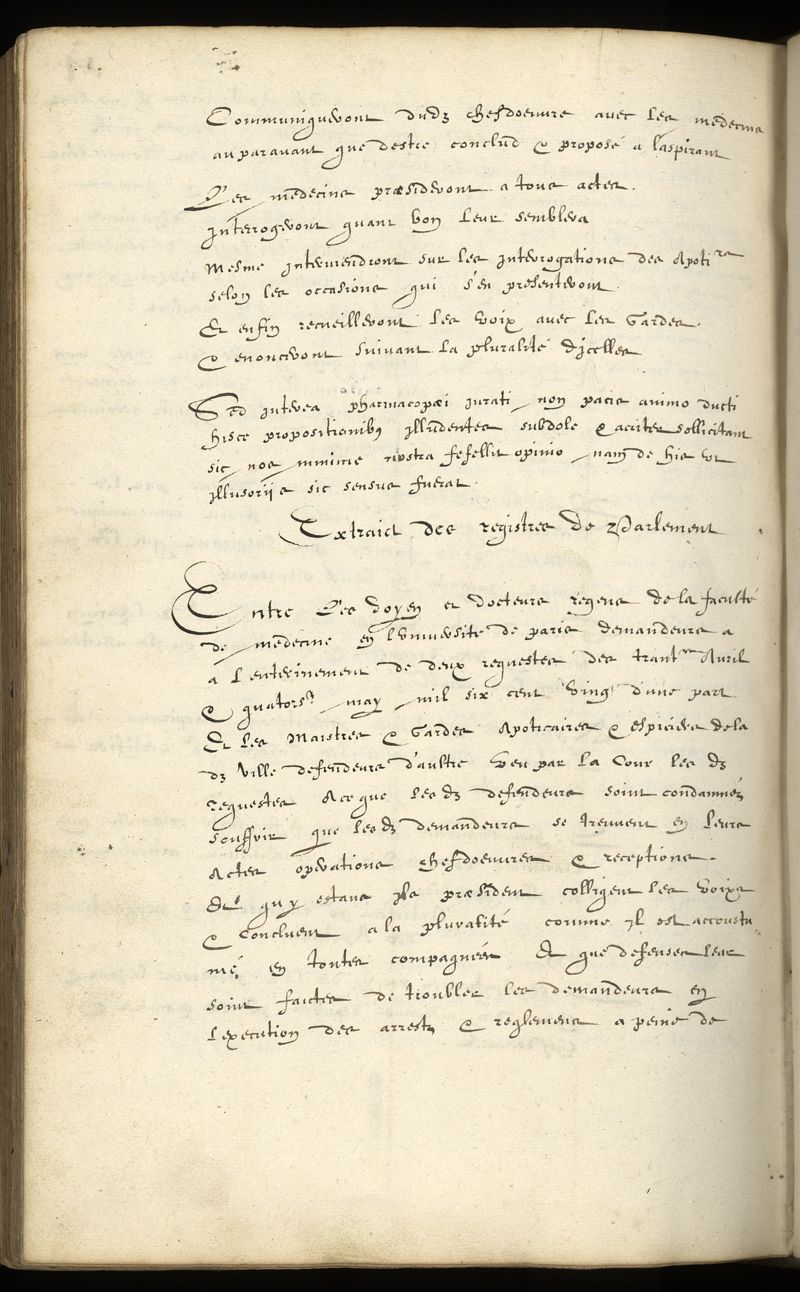 Communiqueront dudz chefdoeuvre avec les medecins
auparavant que destre conclud & proposé a l'aspirant
Les medecins præsideront a tous actes.
Interrogeront quant bon leur semblera
Mesme interviendront sur les interrogations des Apotires
selon les occasions qui s'en presenteront.
Et enfin recueilleront les voix avec les Gardes.
& enonceront suivant la pluralité d'icelles
Sed interea pharmacopœi iurati non pacis animo ducti
hisce propositionibus illudentes subdole & acriter sollicitant
sic nos minime nostra fefellit opinio nam de his ut
illusoriis sic sensus fuerat.
Extraict des registres de Parlement
Entre Les doyen et docteurs regens de la faculté
de medecine en l'Université de paris demandeurs a
a l'enterinement de deux requestes des trantme Avril
& quatorse may mil six cent vingt d'une part
Et les Maistres & Gardes Apoticaires & espiciers de la
dz ville defendeurs d'aultre Veu par la Cour les dz
requestes A ce que lesdz defendeurs soint condamnez
souffrir que lesdz demandeurs se treuvent en leurs
Actes operations chefdoeuvres & receptions.
Et quy estans ilz præsident colligent les voixs
& concluent a la pluralité comme il est accoustu
mé en toutes compagnies Et que defenses leur
soint faictes de troubler les demandeurs en
l'execution des arrestz & reglemens a peine de